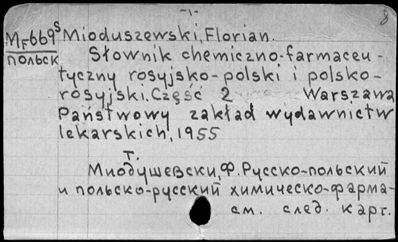 -1-
8
MF669s Mioduszewski, Florian.
польск
Słownik chemiczno-farmaceu-
tyczny rosyjsko-polski i polsko-
rosyjski. Część 2 Warszawa
Państwowy zakład wydawnictw
lekarskich, 1955
т.
Миодушевски, Ф. Русско-польский
и польско-русский химическо-фарма-
см. след. карт.